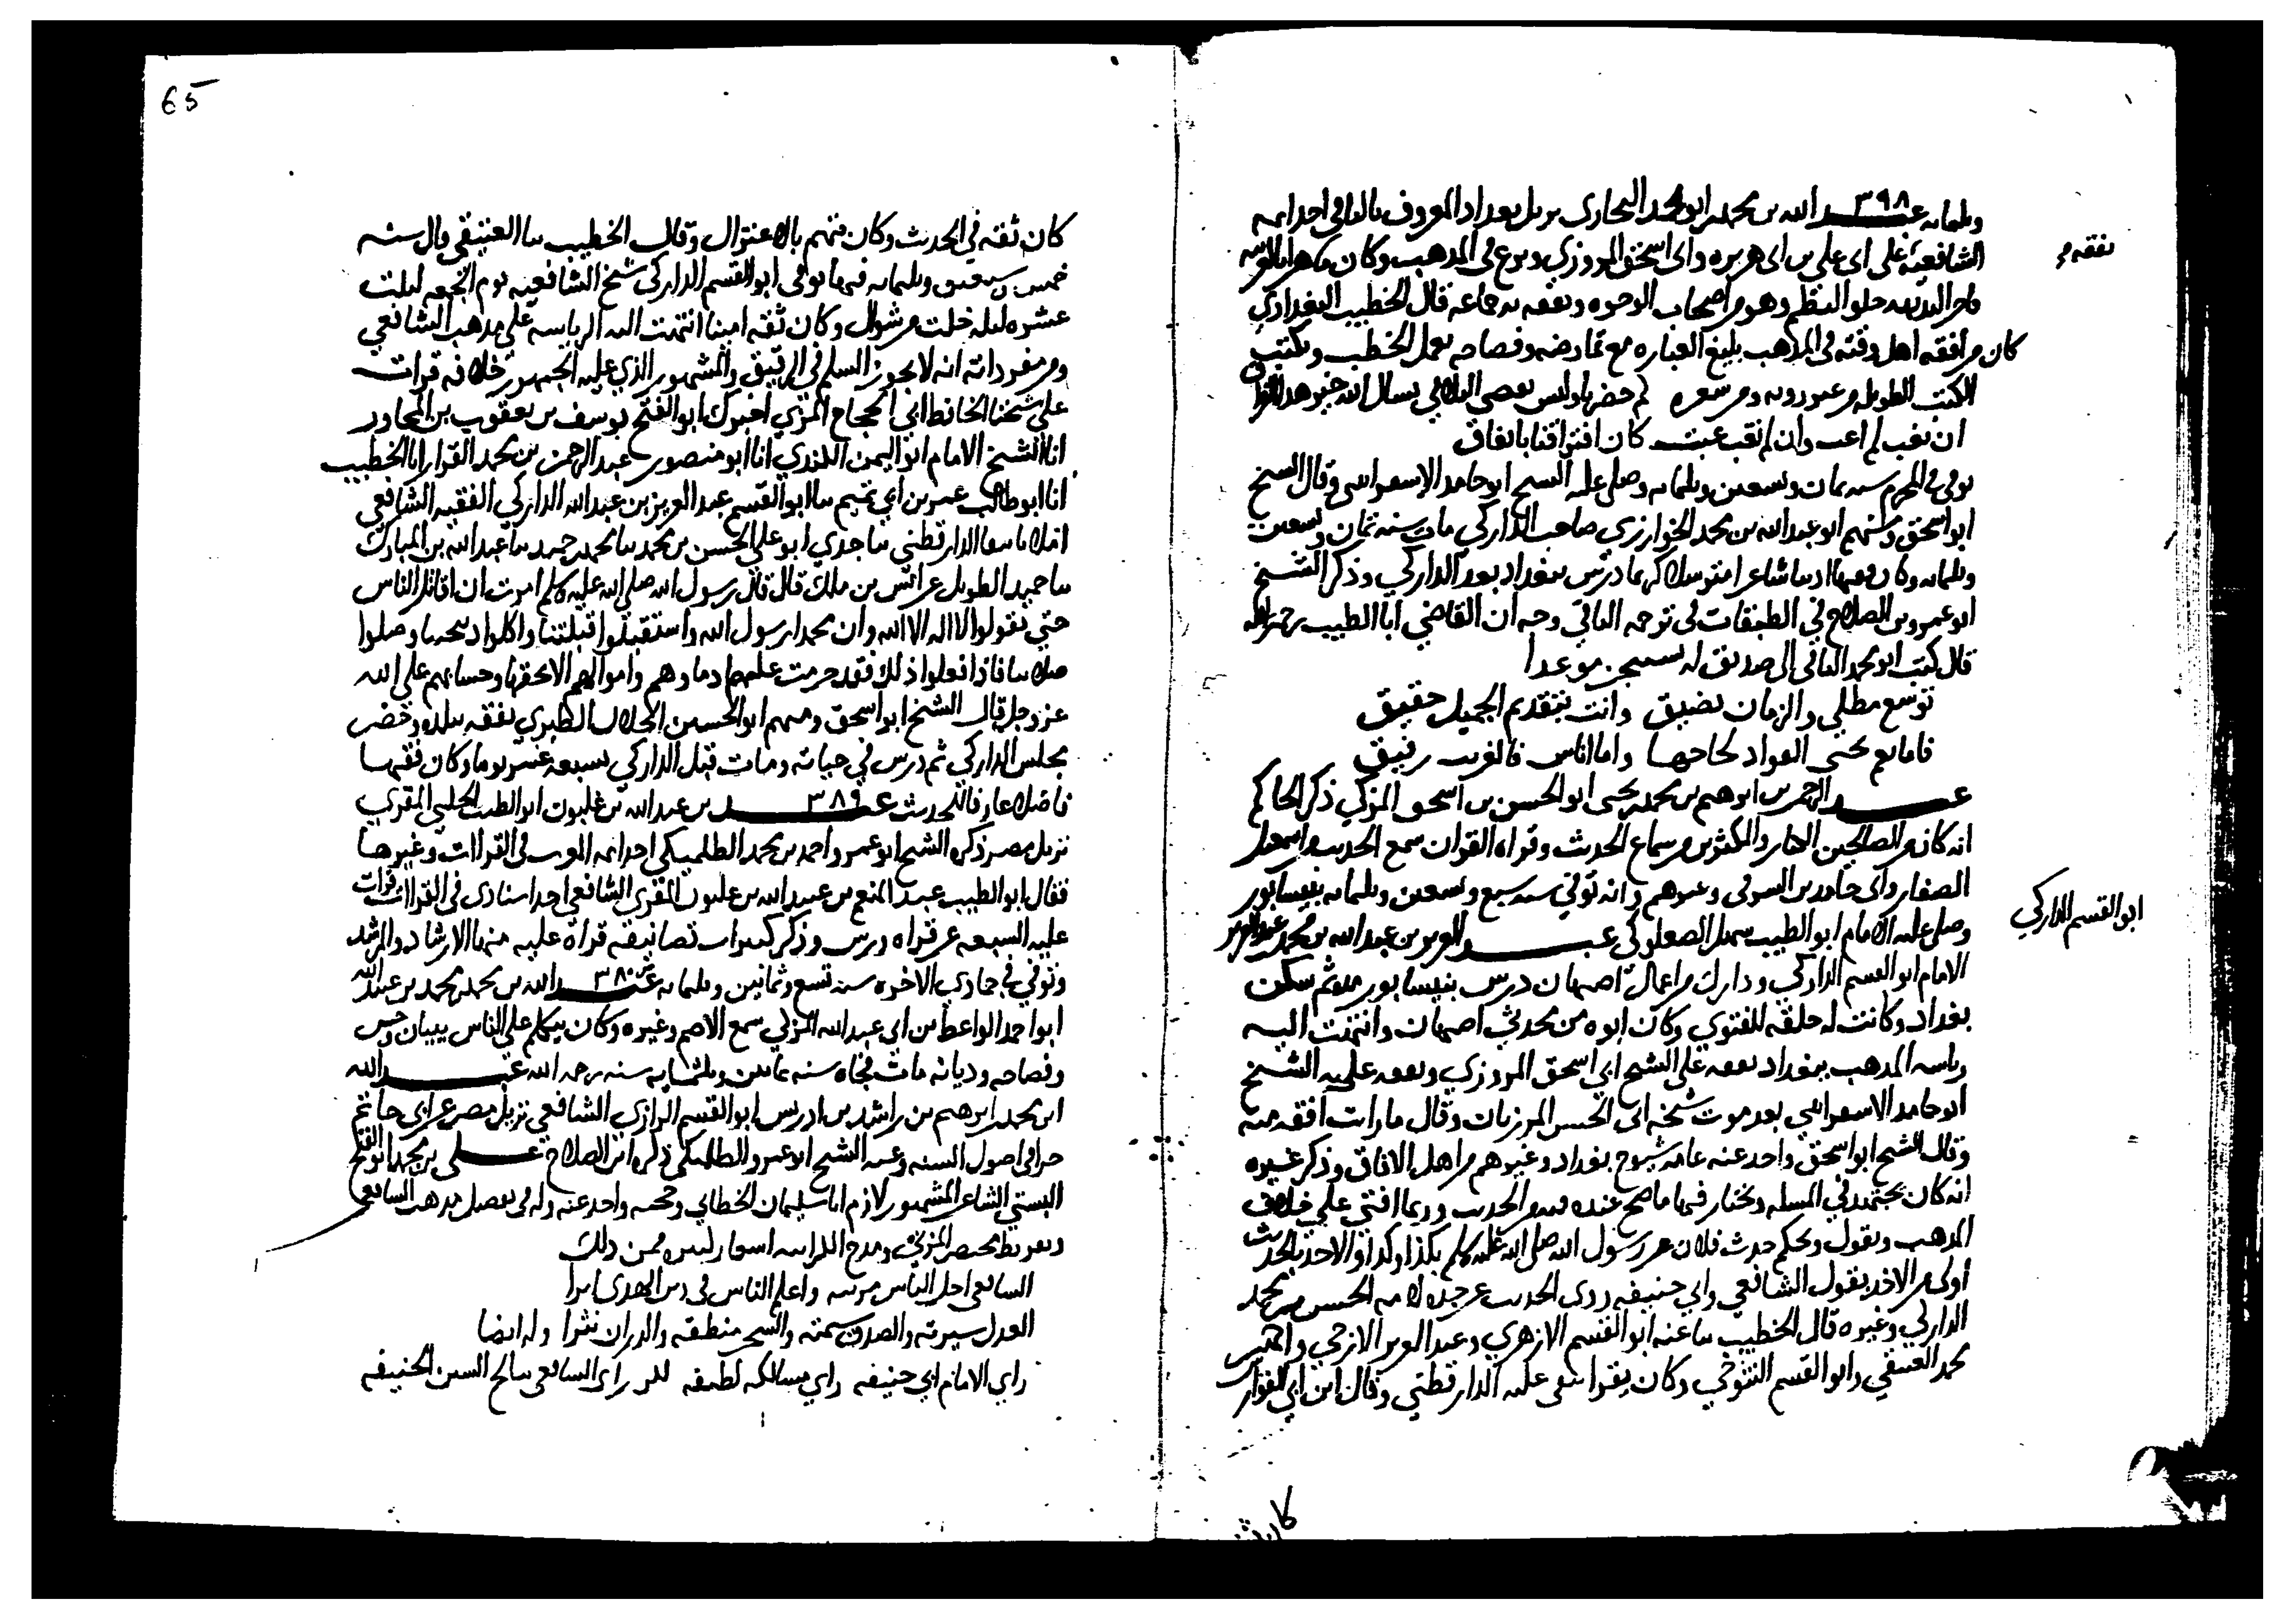 وثلثمائه عبد الله بن محمد ابو محمد البخاري نزيل بغداد المعروف بالبافي احد ايمه
٣٩٨
الشافعيه على ابى علي بن ابى هريره وابى اسحق المروزي وبرع في المذهب وكان ماهرا بالعربيه
تفقه
حاضر البديهه حلو النظم وهو من اصحاب الوجوه وتفقه به جماعه قال الخطيب البغدادي
كان من افقه اهل وقته في المذهب بليغ العباره مع عارضه وفصاحه يعمل الخطب ويكتب
الكتب الطويله من غير رويه ومن شعره كم حضرنا وليس يقضي التلاقي نسال الله خير هذا الفراق
ان تغب لم اغب وان لم تغب غبت كان افتراقنا باتفاق
توفي في المحرم سنه ثمان وتسعين وثلثمائه وصلى عليه الشيخ ابو حامد الاسفراينى وقال الشيخ
ابو اسحق ومنهم ابو عبد الله بن محمد الخوارزمي صاحب الداركي مات سنه ثمان وتسعين
وثلثمائه وكان فقيها اديبا شاعرا مترسلا كريما درس ببغداد بعد الداركي وذكر الشيخ
ابو عمرو بن الصلاح في الطبقات في ترجمه البافي وجه ان القاضي ابا الطيب رحمه الله
قال كتب ابو محمد البافي الى صديق له يستنجز موعدا
توسع مطلي والزمان يضيق وانت بتقديم الجميل حقيق
فاما نعم يحيى الفواد نجاحها واما اياس فالغريب رفيق
عبد الرحمن بن ابرهيم بن محمد بن يحيى ابو الحسن بن اسحق المزكي ذكر الحاكم
انه كان من الصالحين العباد والمكثرين من سماع الحديث وقراه القران سمع الحديث من اسمعيل
الصفار وابى حامد بن الشرقى وغيرهم وانه توفي سنه سبع وتسعين وثلثمائه بنيسابور
وصلى عليه الامام ابو الطيب سهل الصعلوكى عبد العزيز بن عبد الله بن محمد بن عبد العزيز
ابو القسم الداركي
الامام ابو القسم الداركي ودارك من اعمال اصبهان درس بنيسابور مده ثم سكن
بغداد وكانت له حلقه للفتوي وكان ابوه من محدثي اصبهان وانتهت اليه
رياسه المذهب ببغداد تفقه على الشيخ ابي اسحق المروزي وتفقه عليه الشيخ
ابو حامد الاسفراينى بعد موت شيخه ابى الحسن المرزبان وقال ما رايت افقه منه
وقال الشيخ ابو اسحق واخذ عنه عامه شيوخ بغداد وغيرهم من اهل الافاق وذكر غيره
انه كان يجتهد في المسله ويختار فيها ما صح عنده من الحديث وربما افتي على خلاف
المذهب ويقول ويحكم حدث فلان عن رسول الله صلى الله عليه وسلم بكذا وكذا والاخذ بالحديث
اولى من الاخذ بقول الشافعي وابي حنيفه روى الحديث عن جده لامه الحسن بن محمد
الداركي وغيره قال الخطيب ثنا عنه ابو القسم الازهري وعبد العزيز الازجي واحمد بن
محمد العتيقي وابو القسم التنوخي وكان ينتقى عليه الدارقطني وقال ابن ابي الفوارس
كان ثقه
65
كان ثقه في الحديث وكان يتهم بالاعتزال وقال الخطيب ثنا العتيقي قال سنه
خمس وسبعين وثلثمائه فيها توفى ابو القسم الداركي شيخ الشافعيه يوم الجمعه لثلث
عشره ليله خلت من شوال وكان ثقه امينا انتهت اليه الرياسه علي مذهب الشافعي
ومن مفرداته انه لا يجوز السلم في الرقيق والمشهور الذي عليه الجمهور خلافه قرات
على شيخنا الحافظ ابي الحجاج المزي اخبرك ابو الفتح يوسف بن يعقوب بن المجاور
انا الشيخ الامام ابو اليمن الكندي انا ابو منصور عبد الرحمن بن محمد القزاز انا الخطيب
انا ابو طالب عمر بن ابي تميم ثنا ابو القسم عبد العزيز بن عبد الله الداركي الفقيه الشافعي
املا بانتقا الدارقطني ثنا جدي ابو علي الحسن بن محمد ثنا محمد بن حميد ثنا عبد الله بن المبارك
ثنا حميد الطويل عن انس بن ملك قال قال رسول الله صلى الله عليه وسلم امرت ان اقاتل الناس
حتي يقولوا لا اله الا الله وان محمدا رسول الله واستقبلوا قبلتنا واكلوا ذبيحتنا وصلوا
صلاتنا فاذا فعلوا ذلك فقد حرمت علينا دماوهم واموالهم الا بحقها وحسابهم علي الله
عز وجل قال الشيخ ابو اسحق ومنهم ابو الحسين الجلال الطبري تفقه ببلده وحضر
مجلس الداركي ثم درس في حياته ومات قبل الداركي بسبعه عشر يوما وكان فقيها
فاضلا عارفا بالحديث عبد بن عبد الله بن غلبون ابو الطيب الحلبي المقري
٣٨٩
نزيل مصر ذكره الشيخ ابو عمرو احمد بن محمد الطلمنكي احد ايمه المغرب في القراات وغيرها
فقال ابو الطيب عبد المنعم بن عبيد الله بن غلبون المقري الشافعي احد استاذى في القراات قرات
عليه السبعه عن قراه ورش وذكر كثيرا من تصانيفه قراه عليه منها الارشاد والمرشد
وتوفي في جمادي الاخره سنه تسع وثمانين وثلثمائه عبد الله بن محمد بن محمد بن عبد الله
٣٨٠
ابو احمد الواعظ بن ابي عبد الله المزكي سمع الاصم وغيره وكان يتكلم على الناس ببيان وحسن
وفصاحه وديانه مات فجاه سنه ثمانين وثلثمايه سنه رحمه الله عبد الله
ابن محمد بن ابرهيم بن راشد بن ادريس ابو القسم الرازي الشافعي نزيل مصر عن ابن ابى حاتم
جزا في اصول السنه وعنه الشيخ ابو عمرو الطلمنكي ذكره ابن الصلاح علي بن محمد ابو الفتح
البستي الشاعر المشهور لازم ابا سليمان الخطابي وصحبه واخذ عنه وله في تفضيل مذهب الشافعى
وتقريظ مختصر المزني ومدح الكراميه اشعار كثيره فمن ذلك
الشافعي اجل الناس مرتبه واعلم الناس في دين الهدى اثرا
العدل سيرته والصدق سمته والسحر منطقه والدر ان نثرا وله ايضا
راي الامام ابي حنيفه راي مسالكه لطيفه لكن راى الشافعي نتائج السنن الحنيفه